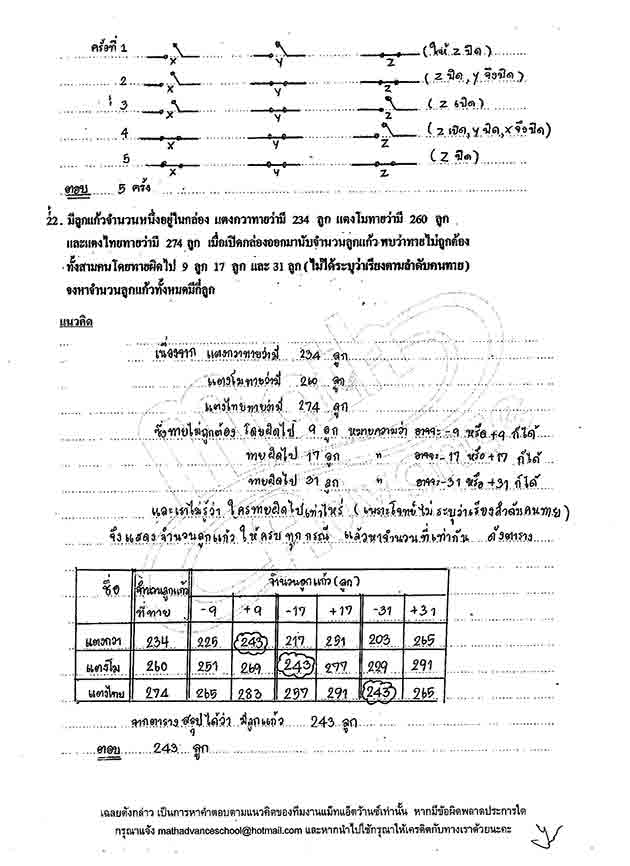 ครั้งที่ 1 X Y Z (ให้ Z ปิด)
2 X Y Z (Z ปิด, Y จึงปิด)
3 X Y Z (Z เปิด)
4 X Y Z (Z เปิด, Y ปิด, X จึงปิด)
5 X Y Z (Z ปิด)
ตอบ 5 ครั้ง
22. มีลูกแก้วจำนวนหนึ่งอยู่ในกล่อง แตงกวาทายว่ามี 234 ลูก แตงโมทายว่ามี 260 ลูก
และแตงไทยทายว่ามี 274 ลูก เมื่อเปิดกล่องออกมานับจำนวนลูกแก้ว พบว่าทายไม่ถูกต้อง
ทั้งสามคนโดยทายผิดไป 9 ลูก 17 ลูก และ 31 ลูก (ไม่ได้ระบุว่าเรียงตามลำดับคนทาย)
จงหาจำนวนลูกแก้วทั้งหมดมีกี่ลูก
แนวคิด
เนื่องจาก แตงกวาทายว่ามี 234 ลูก
แตงโมทายว่ามี 260 ลูก
แตงไทยทายว่ามี 274 ลูก
ซึ่งทายไม่ถูกต้อง โดยผิดไป 9 ลูก หมายความว่า อาจจะ -9 หรือ +9 ก็ได้
ทายผิดไป 17 ลูก " อาจจะ -17 หรือ +17 ก็ได้
ทายผิดไป 31 ลูก " อาจจะ -31 หรือ +31 ก็ได้
และเราไม่รู้ว่า ใครทายผิดไปเท่าไหร่ (เพราะโจทย์ไม่ระบุว่าเรียงลำดับคนทาย)
จึงแสดงจำนวนลูกแก้ว ให้ครบทุกกรณี แล้วหาจำนวนที่เท่ากัน ดังตาราง
ชื่อ จำนวนลูกแก้ว จำนวนลูกแก้ว (ลูก)
ที่ทาย -9 +9 -17 +17 -31 +31
แตงกวา 234 225 243 217 251 203 265
แตงโม 260 251 269 243 277 229 291
แตงไทย 274 265 283 257 291 243 265
จากตาราง สรุปได้ว่า มีลูกแก้ว 243 ลูก
ตอบ 243 ลูก
เฉลยดังกล่าว เป็นการหาคำตอบตามแนวคิดของทีมงานแม็ทแอ็ดวานซ์เท่านั้น หากมีข้อผิดพลาดประการใด
กรุณาแจ้ง mathadvanceschool@hotmail.com และหากนำไปใช้กรุณาให้เครดิตกับทางเราด้วยนะคะ